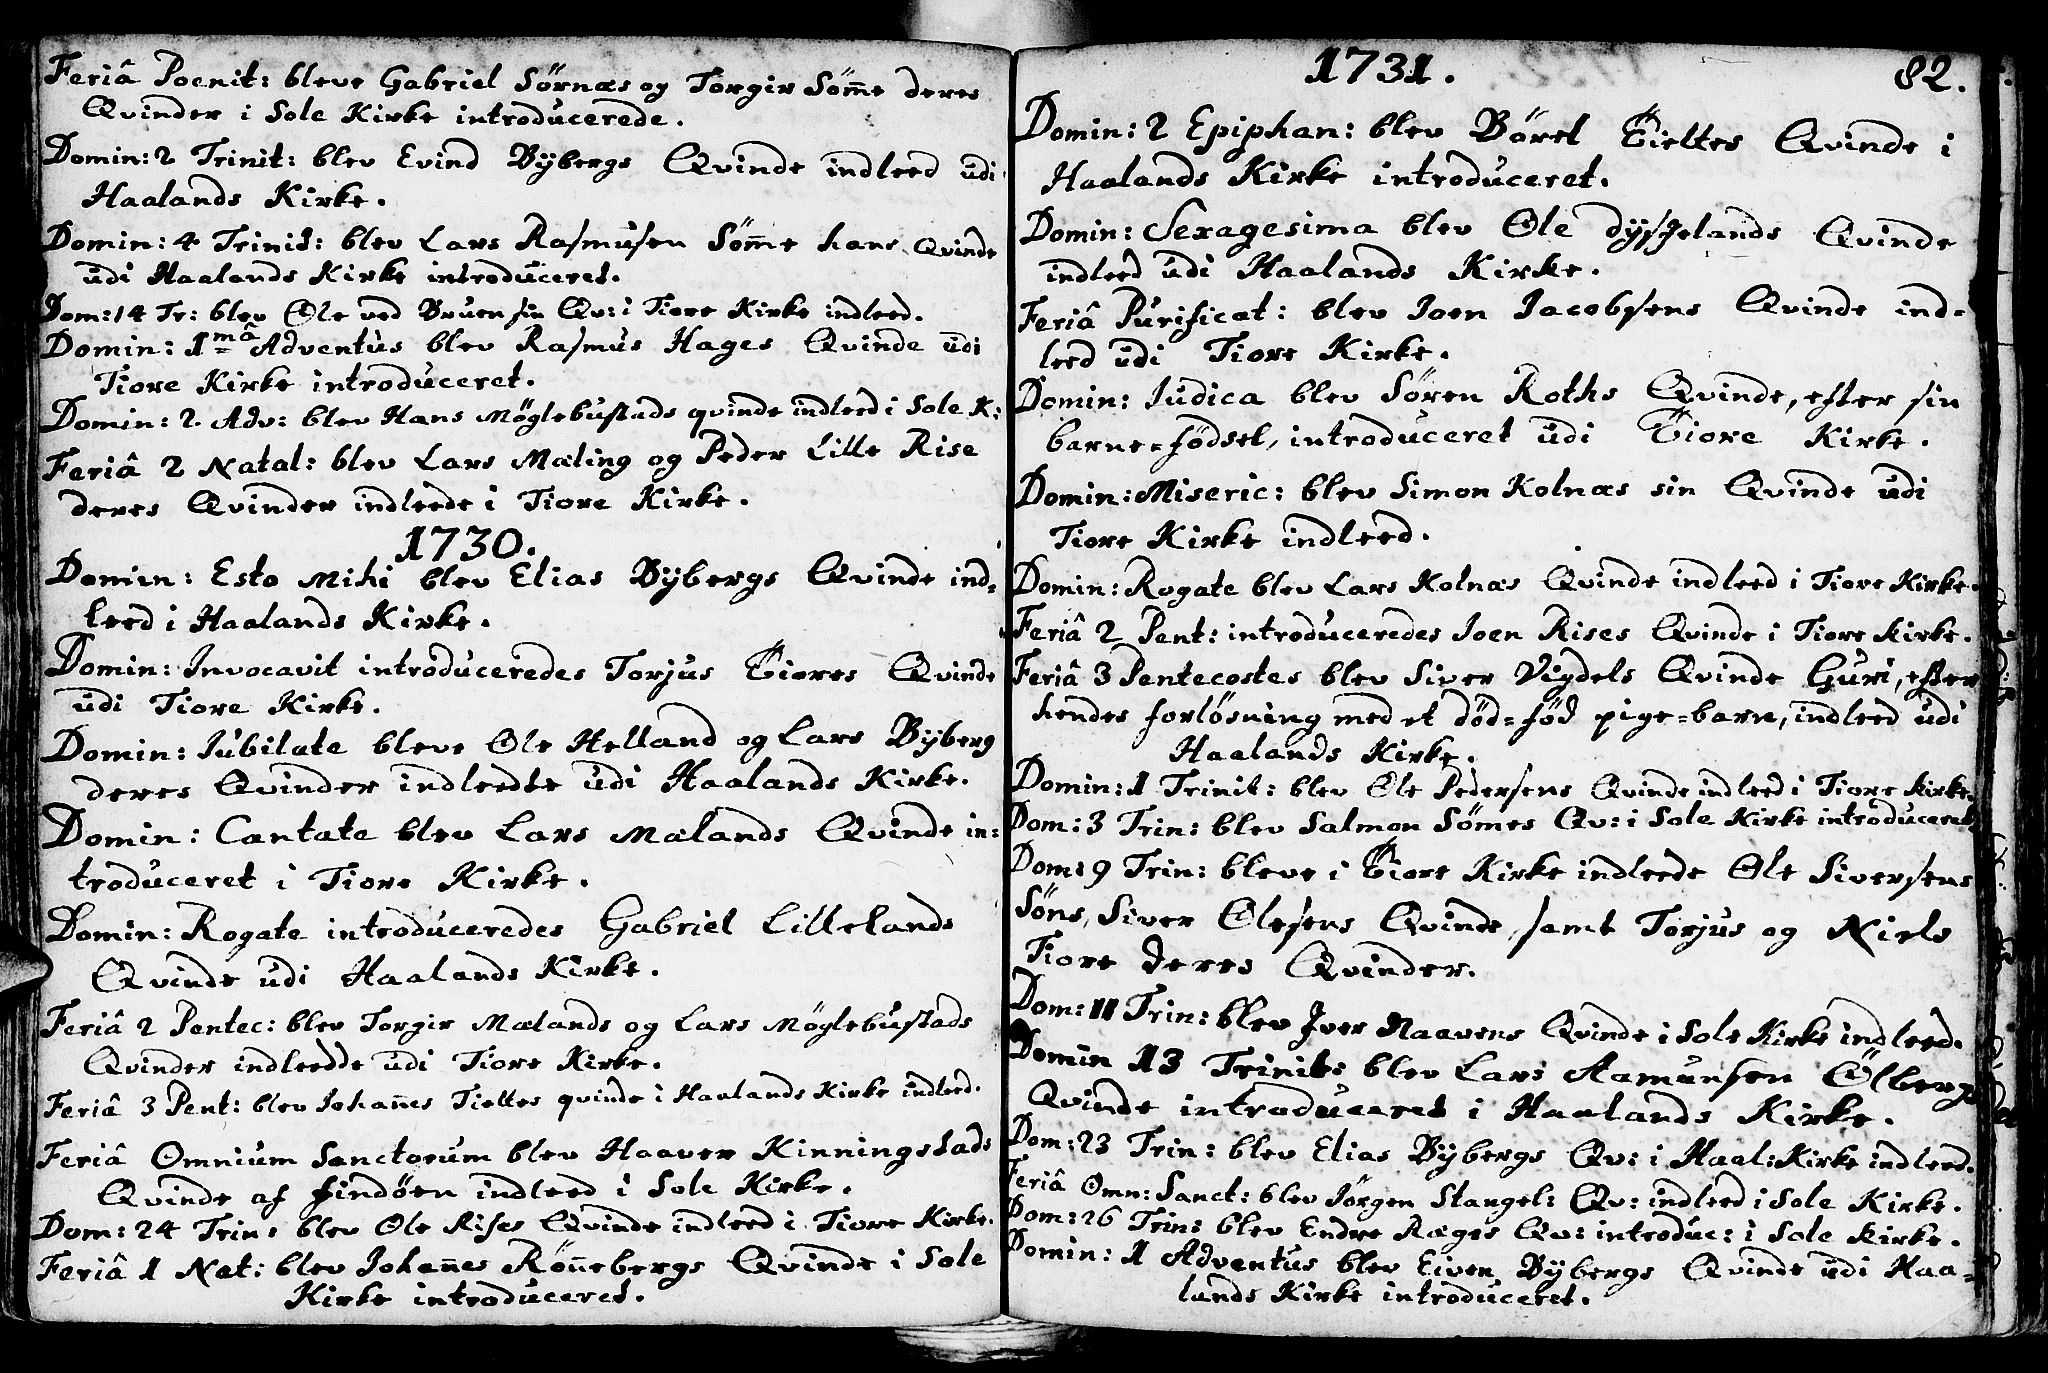 Feriâ Poenit: bleve Gabriel Sørnæs og Torgir Sōme deres
Qvinder i Sole Kirke introducerede.
Domin: 2 Trinit: blev Evind Bÿbergs Qvinde indleed udi
Haalands Kirke.
Domin: 4 Trinit: blev Lars Rasmusen Sōme hans Qvinde
udi Haalands Kirke introduceret.
Dom: 14 Tr: blev Ole ved Bruen sin Qv: i Tiore Kirke indleed.
Domin: 1mâ Adventus blev Rasmus Hages Qvinde udi
Tiore Kirke introduceret.
Domin: 2 Adv: blev Hans Møglebustads qvinde indleed i Sole K:
Feriâ 2 Natal: blev Lars Mæling og Peder Lille Rise
deres Qvinder indleede i Tiore Kirke.
1730.
Domin: Esto Mihi blev Elias Bÿbergs Qvinde ind-
leed i Haalands Kirke.
Domin: Invocavit introduceredes Torjus Tiores Qvinde
udi Tiore Kirke.
Domin: Jubilate bleve Ole Helland og Lars Bÿberg
deres Qvinder indleedte udi Haalands Kirke.
Domin: Cantate blev Lars Mælands Qvinde in:
troduceret i Tiore Kirke.
Domin: Rogate introduceredes Gabriel Lillelands
Qvinde udi Haalands Kirke.
Feriâ 2 Pentec: blev Torgir Mælands og Lars Møglebustads
Qvinder indleedde udi Tiore Kirke.
Feriâ 3 Pent: blev Johañes Tieltes qvinde i Haalands Kirke indleed.
Feriâ Omnium Sanctorum blev Haaver Kinningstads
Qvinde af Findøen indleed i Sole Kirke.
Dom: 24 Trin: blev Ole Rises Qvinde indleed i Tiore Kirke.
Feriâ 1 Nat: blev Johañes Røñebergs Qvinde i Sole
Kirke introduceret.
1731. 82.
Domin: 2 Epiphan: blev Børel Tieltes Qvinde i
Haalands Kirke introduceret.
Domin: Sexagesima blev Ole Qvinde
indleed udi Haalands Kirke.
Feriâ Purificat: blev Joen Jacobsens Qvinde ind-
leed udi Tiore Kirke.
Domin: Judica blev Søren Roths Qvinde, efter sin
barne-fødsel, introduceret udi Tiore Kirke.
Domin: Miseric: blev Simon Kolnæs sin Qvinde udi
Tiore Kirke indleed.
Domin: Rogate blev Lars Kolnæs Qvinde indleed i Tiore Kirke.
Feriâ 2 Pent: introduceredes Joen Rises Qvinde i Tiore Kirke.
Feriâ 3 Pentecostes blev Siver Vigdels Qvinde Guri, efter
hendes forløsning med et død-fød pige-barn, indleed udi
Haalands Kirke.
Domin: 1 Trinit: blev Ole Pedersens Qvinde indleed i Tiore Kirke.
Dom: 3 Trin: blev Salmon Sømes Qv: i Sole Kirke introduceret.
Dom: 9 Trin: bleve i Tiore Kirke indleede Ole Siversens
Søns, Siver Olesens Qvinde, samt Torjus og Niels
Tiore deres Qvinder.
Dom: 11 Trin: blev Iver Naavens Qvinde i Sole Kirke indleed.
Domin 13 Trinit: blev Lars Aamunsen Ølbergs
Qvinde introduceret i Haalands Kirke.
Dom: 23 Trin: blev Elias Bÿbergs Qv: i Haal: Kirke indleed.
Feriâ Omn: Sanct: blev Jørgen Stangel: Qv: indleed i Sole Kirke.
Dom: 26 Trin: blev Endre Ræges Qv: introduc: i Sole Kirke.
Domin: 1 Adventus blev Eiven Bÿbergs Qvinde udi Haa-
lands Kirke introduceret.